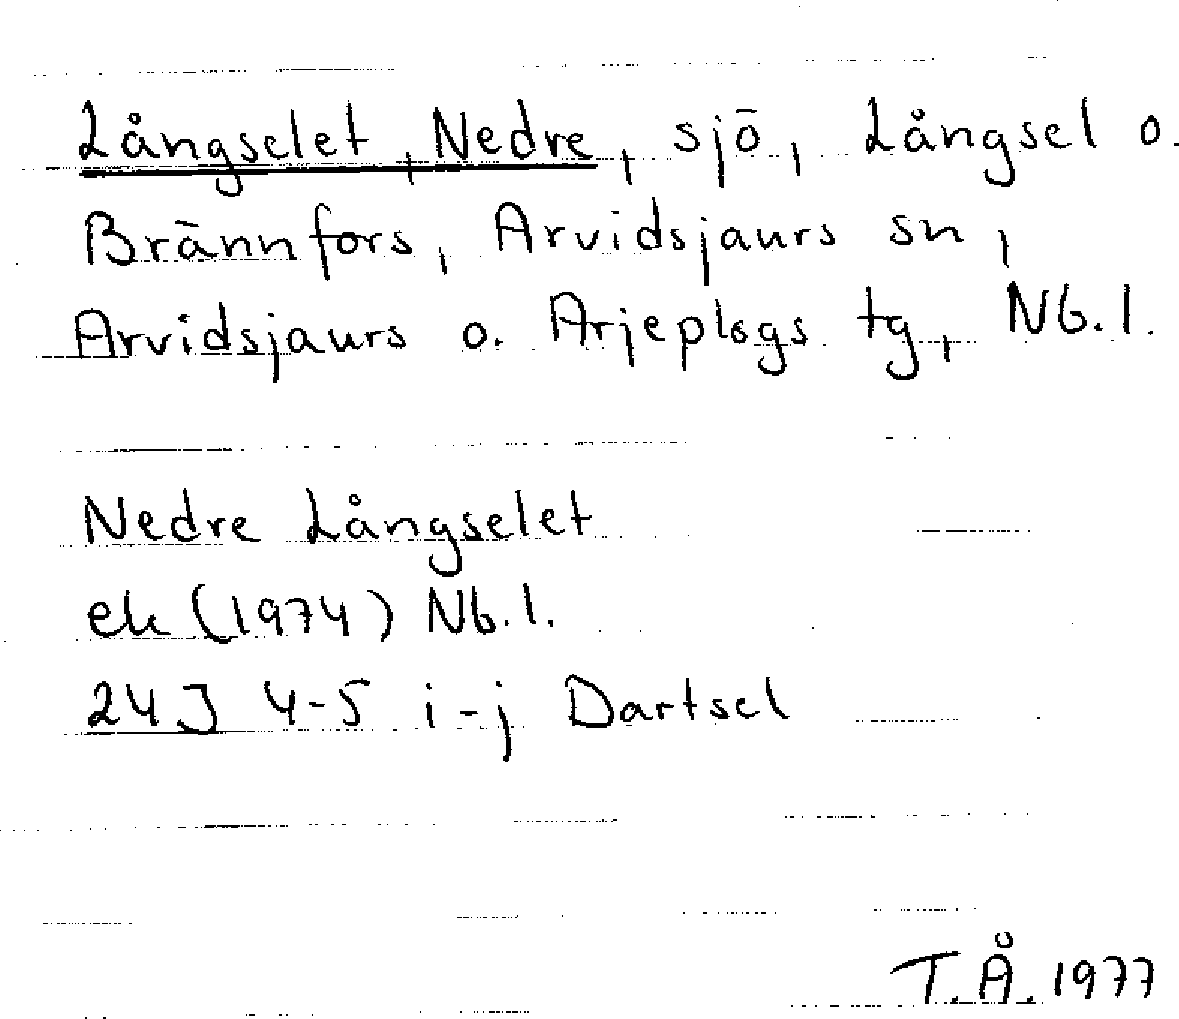 Långselet, Nedre, sjö, Långsel o.
Brännfors, Arvidsjaurs sn,
Arvidsjaurs o. Arjeplogs tg, Nb.l.
Nedre Långselet
ek (1974) Nb.l.
24J 4-5 i-j Dartsel
T.Å. 1977